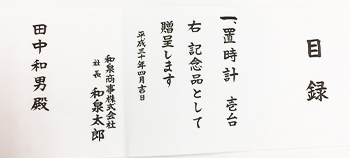 目録
一、置時計 壱台
右 記念品として
贈呈します
平成三十年四月吉日
和泉商事株式会社
社長 和泉太郎
田中和男殿